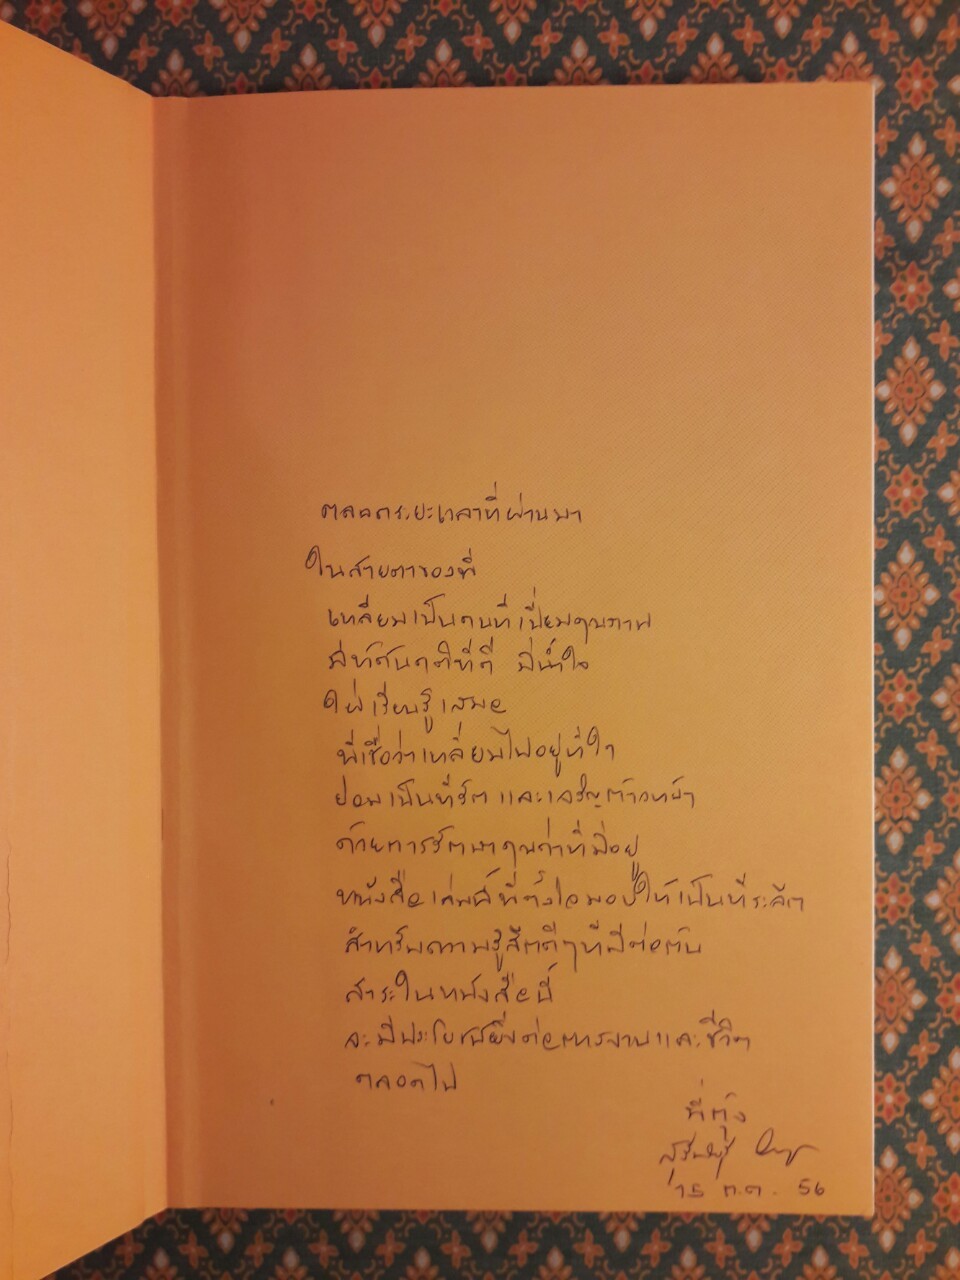 ตลอดระยะเวลาที่ผ่านมา
ในสายตาของพี่
เหลี่ยมเป็นคนที่เปี่ยมคุณภาพ
มีทัศนคติที่ดี มีน้ำใจ
ใฝ่เรียนรู้เสมอ
พี่เชื่อว่าเหลี่ยมไปอยู่ที่ใด
ย่อมเป็นที่รัก และเจริญก้าวหน้า
ด้วยการรักษาคุณค่าที่มีอยู่
หนังสือเล่มนี้พี่ตั้งใจมอบให้เป็นที่ระลึก
สำหรับความรู้สึกดีๆที่มีต่อกัน
สาระในหนังสือนี้
จะมีประโยชน์ยิ่งต่อการงานและชีวิต
ตลอดไป
พี่ตุ้ง
15 ต.ค. 56